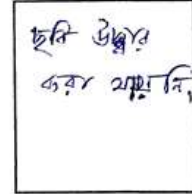 ছবি উদ্ধার
করা যায় নি,